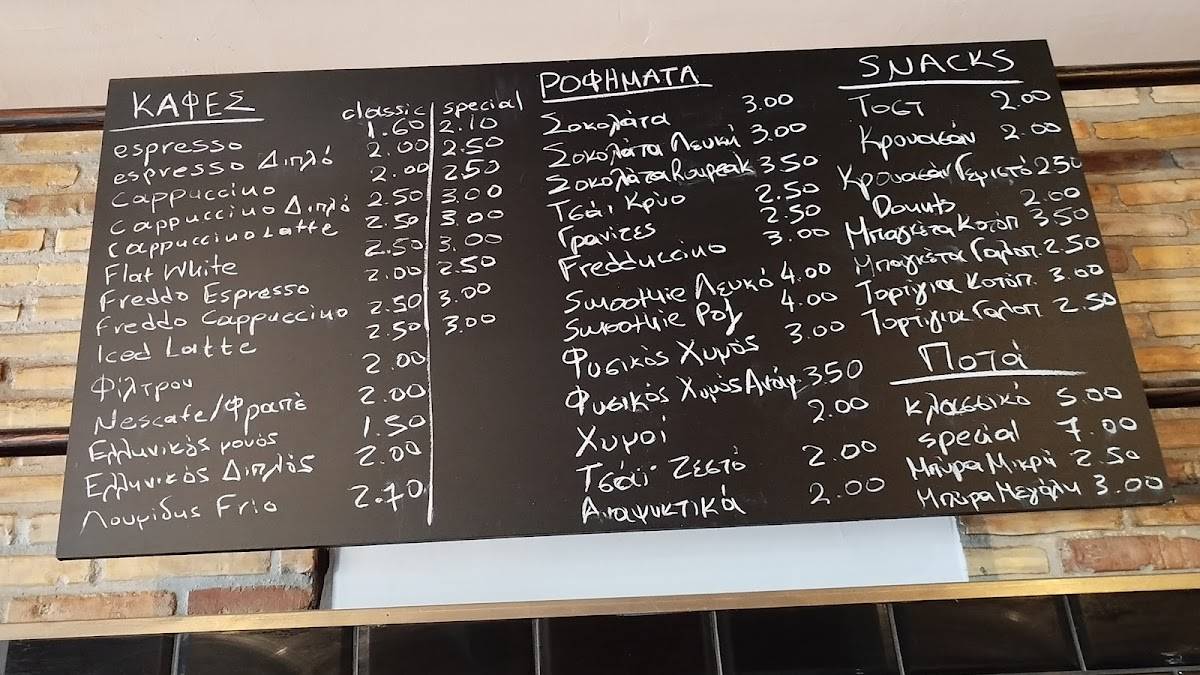 ΚΑΦΕΣ
classic special
espresso 1.60 2.10
espresso Διπλό 2.00 2.50
cappuccino 2.00 2.50
cappuccino Διπλό 2.50 3.00
Cappuccino Latte 2.50 3.00
Flat White 2.50 3.00
Freddo Espresso 2.00 2.50
Freddo Cappuccino 2.50 3.00
Iced Latte 2.50 3.00
Φίλτρου 2.00
Nescafe/Φραπέ 2.00
Ελληνικός μονός 1.50
Ελληνικός Διπλός 2.00
Λουμίδης Frio 2.70
ΡΟΦΗΜΑΤΑ
Σοκολάτα 3.00
Σοκολάτα Λευκή 3.00
Σοκολάτα Rουρεάκ 3.50
Τσάι Κρύο 2.50
Γρανίτες 2.50
Fredduccino 3.00
Smoothie Λευκό 4.00
Smoothie Ροζ 4.00
Φυσικός Χυμός 3.00
Φυσικός Χυμός Ανάμ 3.50
Χυμοί 2.00
Τσάι Ζεστό 2.00
Αναψυκτικά 2.00
SNACKS
Τοστ 2.00
Κρουασάν 2.00
Κρουασάν Γεμιστό 2.50
Donuts 2.00
Μπαγκέτα Κοτόπ 3.50
Μπαγκέτα Γαλοπ. 2.50
Τορτίγια Κοτόπ. 3.00
Τορτίγια Γαλοπ 2.50
Ποτά
Κλασσικό 5.00
special 7.00
Μπύρα Μικρή 2.50
Μπύρα Μεγάλη 3.00